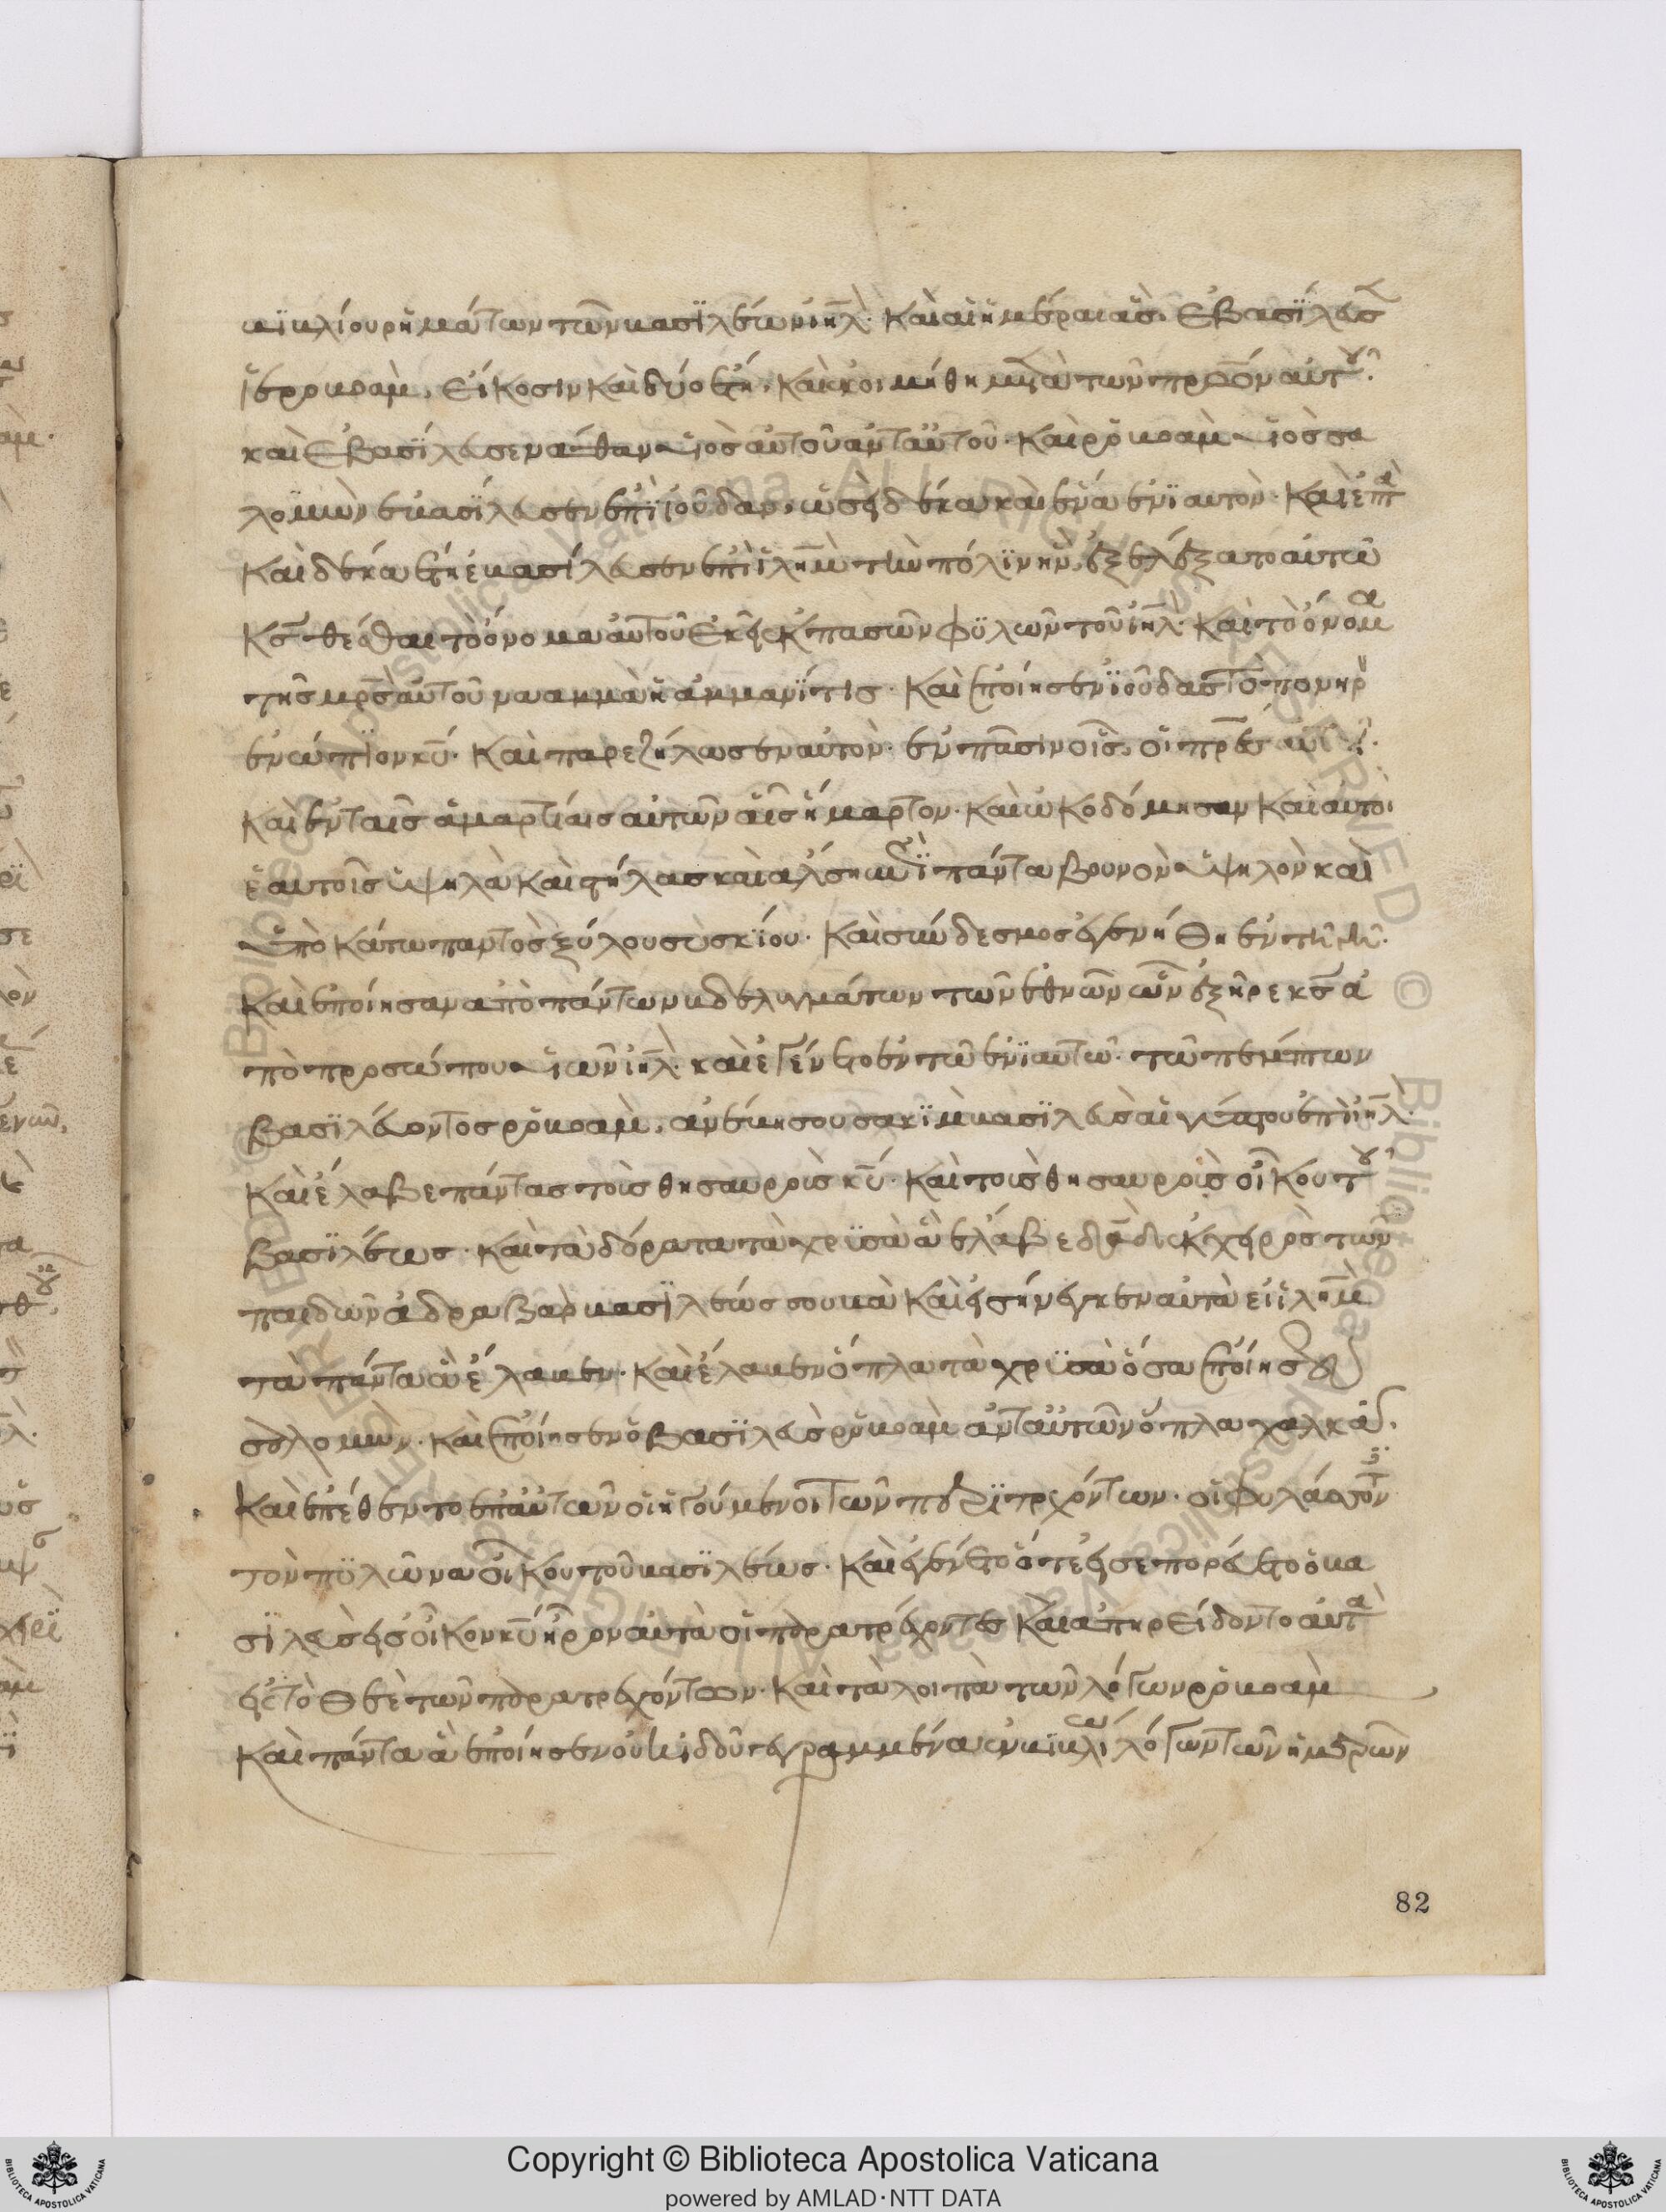 βϊβλίου ῥημάτων τῶν βασϊλέων ιη̅λ̀. Καὶ αἱ ἡμέραι ἃς ἐβασίλευσ
ϊεροβοὰμ, εἴκοσιν καὶ δύο ἔτη, καὶ κοιμήθη μετὰ τῶν πρ̅ων αὐτοῦ.
καὶ ἐβασϊλευσεν ἀθὰν υἱὸς αὐτοῦ ἀντ αὐτοῦ. Καὶ ῥοβοὰμ υἱὸς σα
λομὼν ἐβασίλευσεν ἐπὶ ϊούδαν, ὡσεὶ δέκα καὶ ἑνὰ ἐνϊαυτὸν. Καὶ ἑπτὰ
Καὶ δέκα ἔτη ἐβασίλευσεν ἐπὶ ϊλη̅μ̀ τὴν πόλϊν ἣν ἐξελέξατο αὐτῶ
Κς̅ θέσθαι τὸ ὄνομα αὐτοῦ ἐκεῖ ἐκ πασῶν φϋλῶν τοῦ ιη̅λ̀. Καὶ τὸ ὄνομα
τῆς μρ̅ς αὐτοῦ νααμμὰ ἡ ἀμμανίτις. Καὶ ἐποίησεν ϊούδας τὸ πονηρὸ
ἐνώπϊον κυ̅. Καὶ παρεζήλωσεν αὐτὸν. ἐν πᾶσιν οἷς, οἱ πρ̅ες αὐτοῦ.
Καὶ ἐν ταῖς ἁμαρτίαις αὐτῶν αἷς ἥμαρτον. καὶ ὠκοδόμησαν καὶ αὐτοι
ἑαυτοῖς ὑψηλὰ καὶ στήλας καὶ ἀλση ἐπὶ πάντα βουνὸν ὑψηλὸν καὶ
ὑπὸ κάτω παντὸς ξύλου συσκίου. Καὶ σύνδεσμος ἐγενήθη ἐν τῇ γῇ.
Καὶ ἐποίησαν ἀπὸ πάντων βδελυγμάτων τῶν ἐθνῶν ὧν ἐξῆρε κς̅ ἀ
πὸ προσώπου υἱῶν ιη̅λ̀. καὶ ἐγένετο ἐν τῶ ἐνϊαυτῶ. τῶ πέμπτων
βασϊλέυοντος ῥοβοὰμ, ἀνέβη σουσακϊμ βασϊλευς αἰγύπτου ἐπὶ ιη̅λ̀.
Καὶ ἔλαβε πάντας τοὶς θησαυροὶς κυ̅. Καὶ τοὶς θησαυροὶς οἴκου τοῦ
βασϊλέως. Καὶ τὰ δόρατα τὰ χρϋσὰ ἃ ἐλάβε δα̅δ ἐκ χειρὸς τῶν
παιδῶν ἀδρααβὰρ βασϊλέως σουβὰ καὶ εἰσήνεγκεν αὐτὰ εἰ ϊλη̅μ̀
τὰ πάντα ἃ ἔλαβεν. Καὶ ἔλαβεν ὅπλα τὰ χρϋσὰ ὅσα ἐποίησεν
σολομὼν. καὶ ἐποίησεν ὁ βασϊλεὺς ῥοβοὰμ ἀντ αὐτῶν ὅπλα χαλκά.
Καὶ ἐπέθεντο ἐπ αὐτῶν οἱ ἡγούμενοι τῶν παρατρεχόντων. οἱ φυλάσσον
τὸν πϋλῶνα οἴκου τοῦ βασϊλέως. Καὶ ἐγένετο ὅτε εἰσεπορεύετο ὁ βα
σϊλεὺς εἰς οἶκον κυ̅ ἦρον αὐτὰ οἱ παρατρέχοντες καὶ ἀπηρείδοντο αὐτὰ
εἰς τὸ θεὲ τῶν παρατρεχόντων. Καὶ τὰ λοιπὰ τῶν λόγων ῥοβοὰμ
Καὶ πάντα ἃ ἐποίησεν οὐκ ϊδοῦ γεγραμμένα ἐν βϊβλίω λόγων τῶν ἡμερῶν
82
Copyright © Biblioteca Apostolica Vaticana
powered by AMLAD·NTT DATA